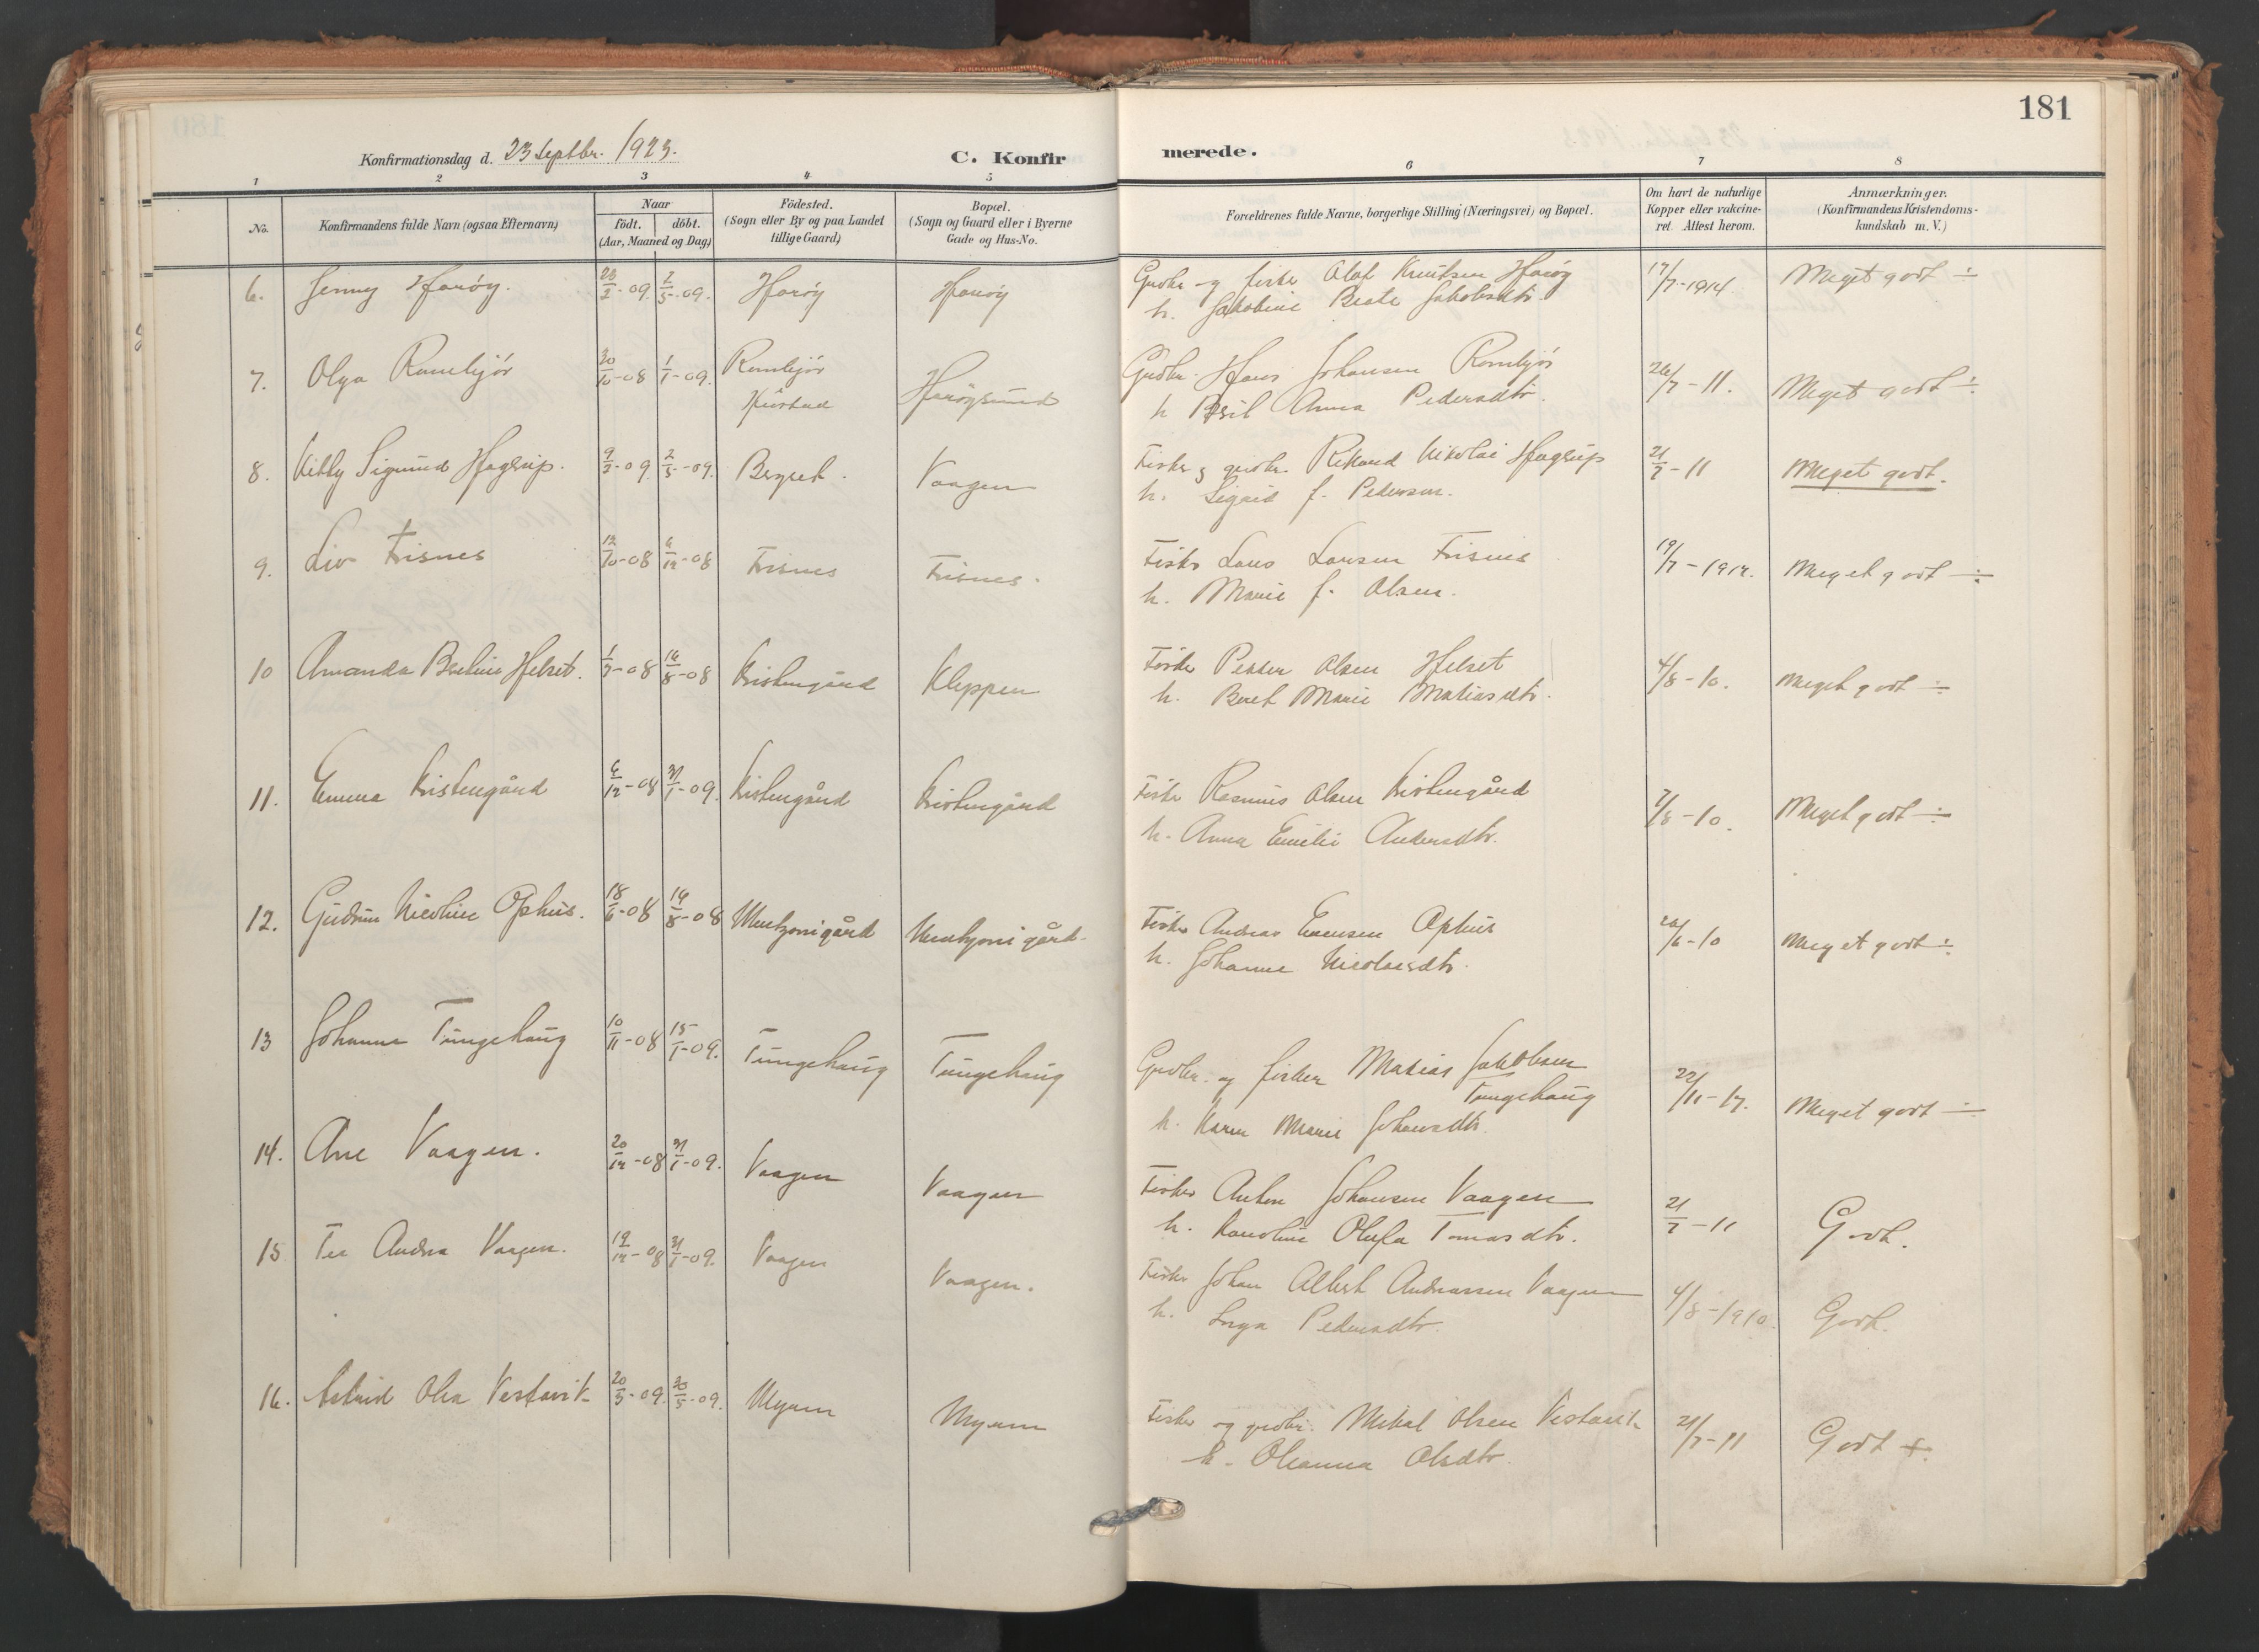 181
Konfirmationsdag d. 23 Septbr. 1923.
C. Konfirmerede.
1 2 3 4 5 6 7 8
No. Konfirmandens fulde Navn (ogsaa Efternavn) Naar födt. döbt. (Aar, Maaned og Dag) Födested. (Sogn eller By og paa Landet tillige Gaard) Bopæl. (Sogn og Gaard eller i Byerne Gade og Hus-No. Forældrenes fulde Navne, borgerlige Stilling (Næringsvei) og Bopæl. Om havt de naturlige Kopper eller vakcineret. Attest herom. Anmærkninger. (Konfirmandens Kristendomskundskab m.V.)
6. Jenny Harøy. 2-09. 2/5-09. Harøy Harøy Grdbr. og fisker Olaf Knutsen Harøy 17/7-1914. Meget godt ÷
h. Jakobine Beate Jakobsdtr.
7. Olga Rambjør 30/10-08 1/1-09. Rambjør Harøysund Grdbr. Hans Johansen 26/7-11. Meget godt ÷
Hustad h. Anna Pedersdtr.
8. Sigmund Hagerup. 9/2-09. 2/5-09. Berget. Vaagen Fisker og grdbr. Rikard Nikolai Hagerup 21/7-11 Meget godt.
h. Sigrid f. Pedersen.
9. Liv Frisnes 12/10-08 6/12-08 Frisnes Frisnes. Fisker Lars Larsen Frisnes 19/7-1912. Meget godt ÷
h. Marie f. Olsen.
10 Amanda Berline Helset. 1/7-08 16/8-08 Kristengård Kleppen Fisker Petter Olsen Helset 4/8-10. Meget godt ÷
h. Beret Marie Matiasdtr.
11. Emma Kristengård 6/12-08 31/1-09. Kristengård Kristengård Fisker Rasmus Olsen Kristengård 7/8-10. Meget godt ÷
h. Anna Emilie Andersdtr.
12. Gudrun Nicoline Ophus. 18/6-08 16/8-08 Mentzonigård Mentzonigård. Fisker Andreas Evensen Ophus /6-10 Meget godt ÷
h. Johanne Nicolaisdtr.
13 Johanna Tungehaug 10/11-08 15/1-09. Tungehaug Tungehaug Grdbr. og fisker Matias Jakobsen 22/11-17. Meget godt ÷
Tungehaug
h. Karen Marie Johansdtr.
14. Ane Vaagen. 20/12-08 31/1-09. Vaagen Vaagen Fisker Anton Johansen Vaagen 21/7-11 Godt.
h. Karoline Olufa Tomasdtr.
15 Andrea Vaagen. 19/12-08 31/1-09. Vaagen Vaagen. Fisker Johan Albert Andreassen Vaagen 4/8-1910. Godt.
h. Inga Pedersdtr.
16. Astrid Olea Vestavik 20/3-09. 30/5-09. Myren Myren Fisker og grdbr. Mikal Olsen Vestavik 21/7-11 Godt +
h. Oleanna Olsdtr.